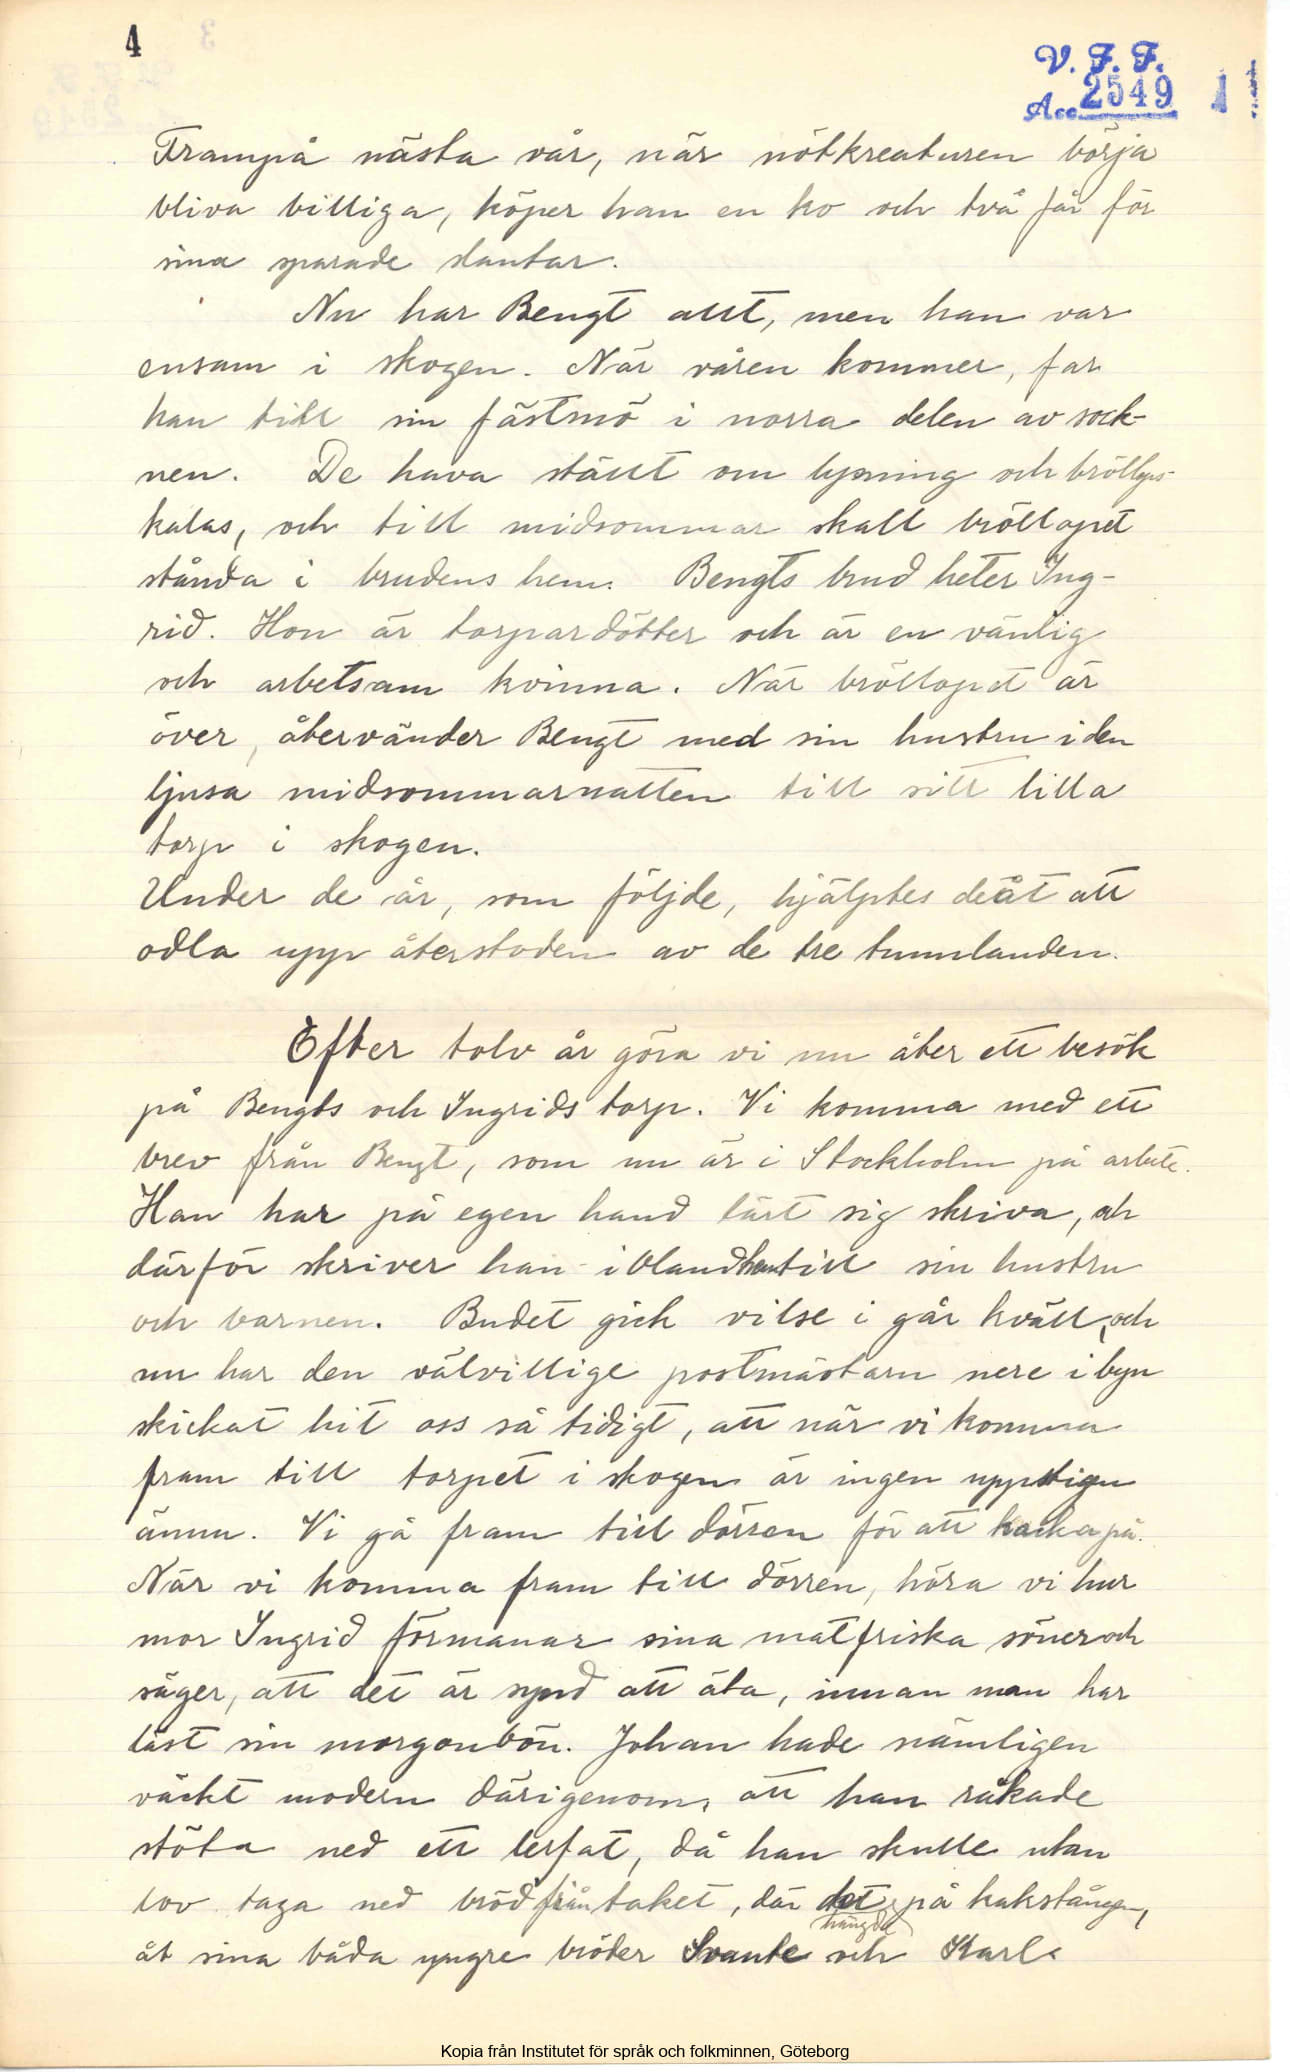 4
V. F. F.
Acc. 2549 11
Frampå nästa vår, när nötkreaturen börja
bliva billiga, köper han en ko och två får för
sina sparade slantar.
Nu har Bengt allt, men han var
ensam i skogen. När våren kommer, far
han till sin fästmö i norra delen av sock-
nen. De hava ställt om lysning och bröllops-
kalas, och till midsommar skall bröllopet
stånda i brudens hem. Bengts brud heter Ing-
rid. Hon är torpardotter och är en vänlig
och arbetsam kvinna. När bröllopet är
över, återvänder Bengt med sin hustru i den
ljusa midsommarnatten till sitt lilla
torp i skogen.
Under de år, som följde, hjälptes de åt att
odla upp återstoden av de tre tunnlanden.
Efter tolv år göra vi nu åter ett besök
på Bengts och Ingrids torp. Vi komma med ett
brev från Bengt, som nu är i Stockholm på arbete.
Han har på egen hand lärt sig skriva, och
därför skriver han ibland hem till sin hustru
och barnen. Budet gick vilse i går kväll, och
nu har den välvillige postmästarn nere i byn
skickat hit oss så tidigt, att när vi komma
fram till torpet i skogen är ingen uppstigen
ännu. Vi gå fram till dörren för att knacka på.
När vi komma fram till dörren, höra vi hur
mor Ingrid förmanar sina matfriska söner och
säger, att det är synd att äta, innan man har
läst sin morgonbön. Johan hade nämligen
väckt modern därigenom, att han råkade
stöta ned ett lerfat, då han skulle utan
lov taga ned bröd från taket, där det hängde på kakstången,
åt sina båda yngre bröder Svante och Karl.
Kopia från Institutet för språk och folkminnen, Göteborg